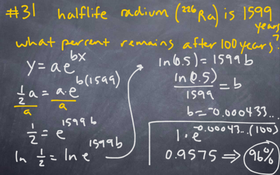 #31 halflife radium (²²⁶Ra) is 1599 years
what percent remains after 100 years?
y = ae^bx
½a/a = a·e^b(1599)/a
½ = e^1599b
ln ½ = ln e^1599b
ln(0.5) = 1599b
ln(0.5)/1599 = b
b = -0.000433...
1·e^-0.000433...(100)
0.9575 ⇒ 96%